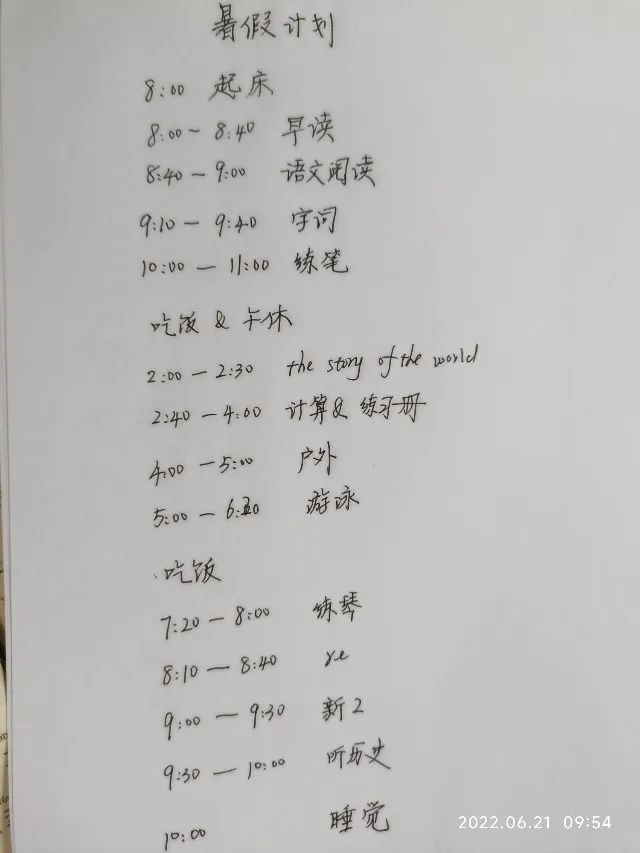 暑假计划
8:00 起床
8:00~8:40 早读
8:40—9:00 语文阅读
9:10—9:40 字词
10:00—11:00 练笔
吃饭 & 午休
2:00—2:30 the story of the world
2:40—4:00 计算& 练习册
4:00—5:00 户外
5:00—6:30 游泳
吃饭
7:20—8:00 练琴
8:10—8:40 re
9:00—9:30 新2
9:30—10:00 听历史
10:00 睡觉
2022.06.21 09:54